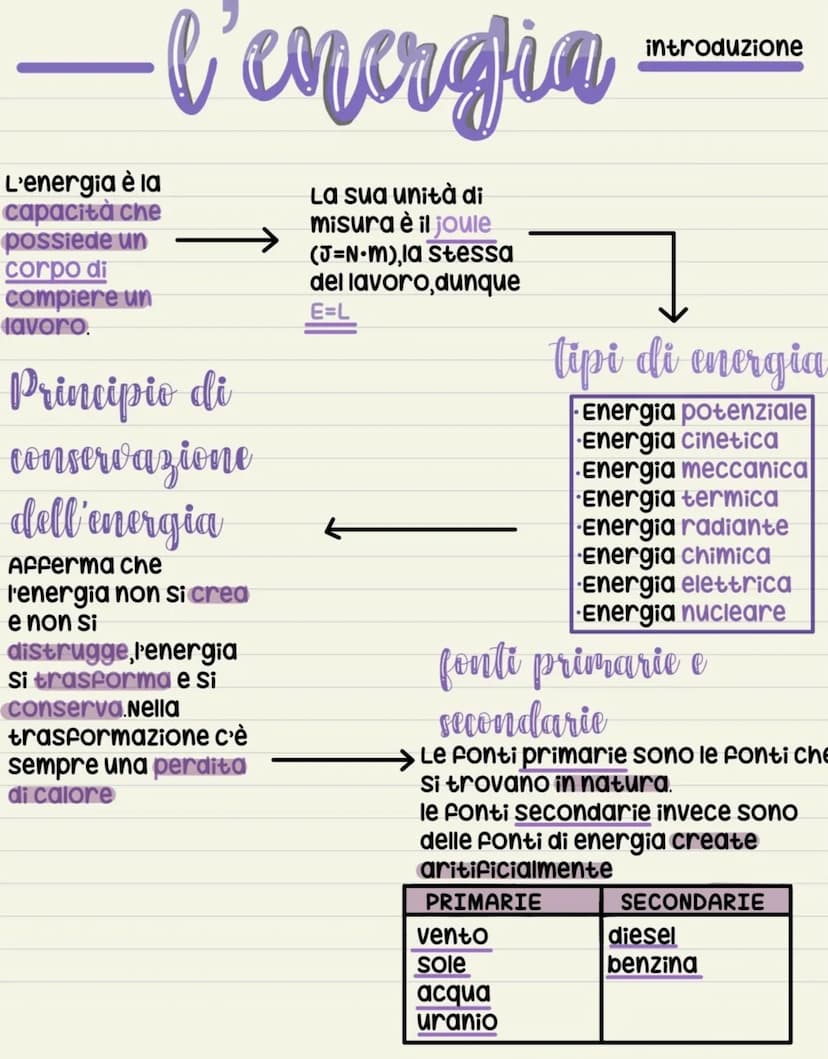 l'energia
introduzione
L'energia è la
capacità che
possiede un
corpo di
compiere un
lavoro.
La sua unità di
misura è il joule
(J=N·m),la stessa
del lavoro,dunque
E=L
tipi di energia
·Energia potenziale
·Energia cinetica
·Energia meccanica
·Energia termica
·Energia radiante
·Energia chimica
·Energia elettrica
·Energia nucleare
Principio di
conservazione
dell'energia
Afferma che
l'energia non si crea
e non si
distrugge,l'energia
si trasforma e si
conserva.Nella
trasformazione c'è
sempre una perdita
di calore
fonti primarie e
secondarie
Le fonti primarie sono le fonti che
si trovano in natura.
le fonti secondarie invece sono
delle fonti di energia create
aritificialmente
PRIMARIE SECONDARIE
vento diesel
sole benzina
acqua
uranio